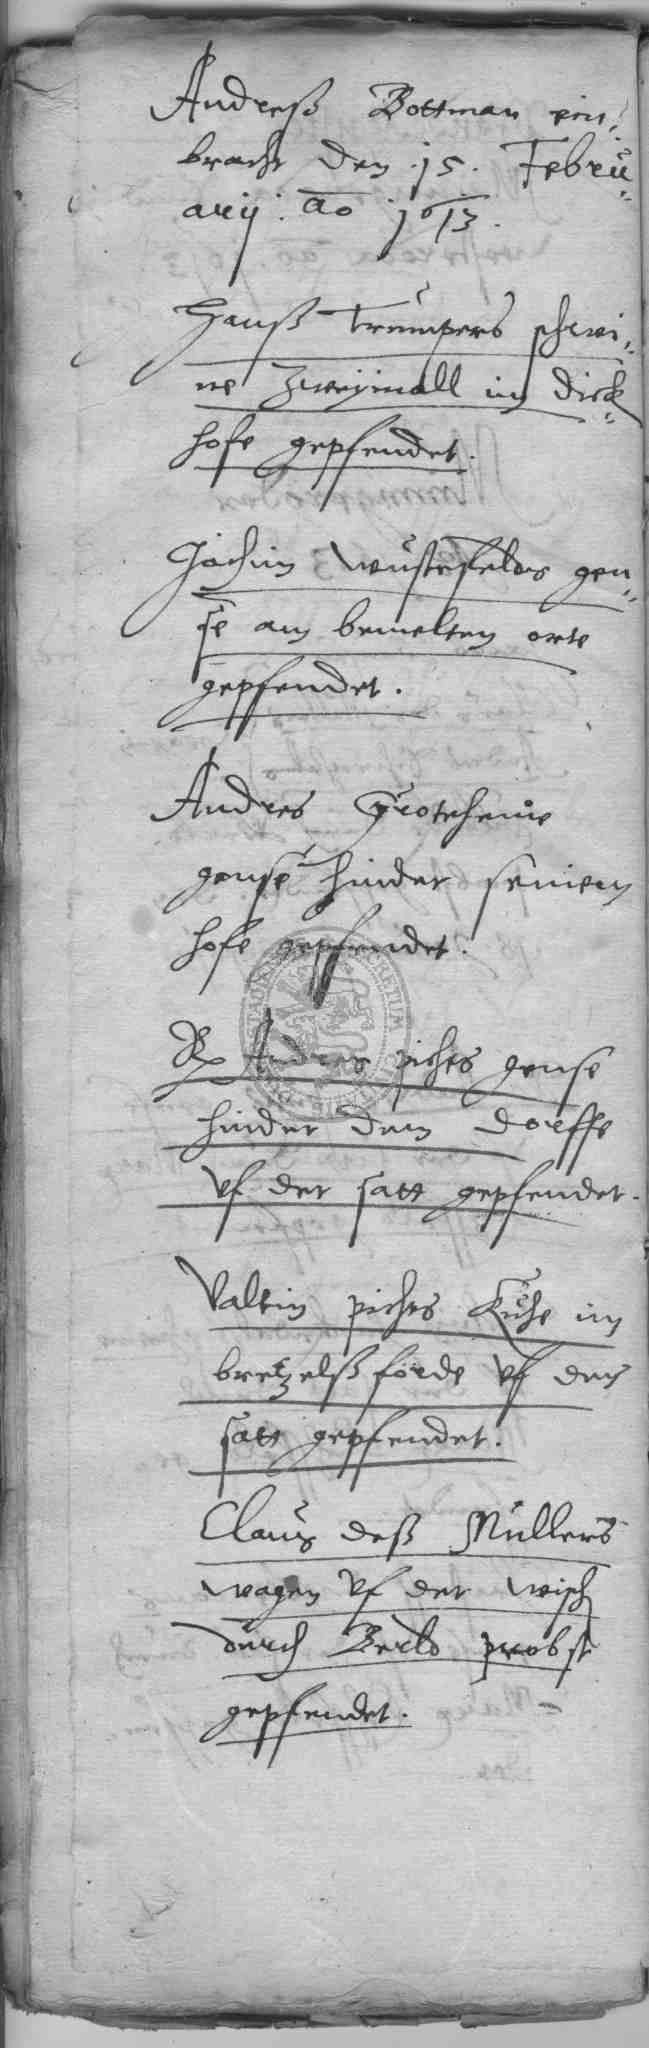 Andreß Bottman ein¬
bracht den 15. Febru¬
arij. ao 1613.
Hanß Trumpers schwei¬
ne zweymall im Dick¬
hofe gepfendet.
Jochim Wustefeldts gen¬
se am bemelten orte
gepfendet.
Andres Grotehenne
gense hinder seinem
hofe gepfendet.
Rp Andres pichts gense
hinder dem Dorffe
vf der satt gepfendet.
Valtin pichts Kuhe im
bretzelßforde vf der
satt gepfendet.
Clauß deß Müllers
wagen vf der wisch
durch Berld probst
gepfendet.